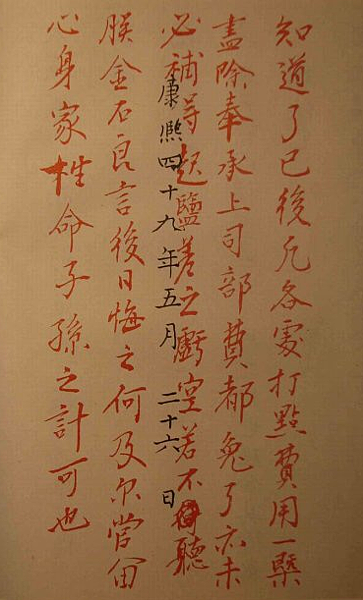 知道了已後凡各處打點費用一槩
盡除奉承上司部費都免了亦未
必補得起鹽差之虧空若不聽
康熙四十九年五月二十六日
朕金石良言後日悔之何及尔當留
心身家性命子孫之計可也